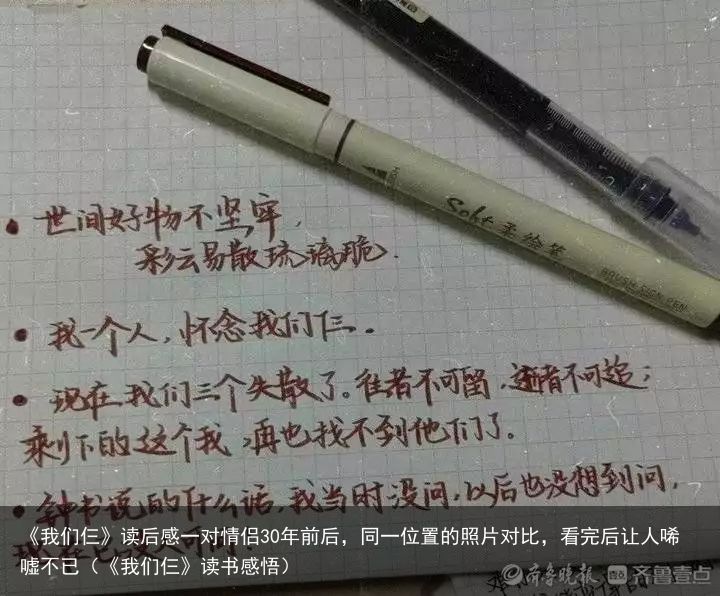 Soft 柔绘笔
BRUSH SIGN PEN
• 世间好物不坚牢,
彩云易散琉璃脆.
• 我一个人,怀念我们仨。
• 现在我们三个失散了。往者不可留,逝者不可追;
剩下的这个我,再也找不到他们了。
• 钟书说的什么话,我当时没问,以后也没想到问,
现在已
《我们仨》读后感一对情侣30年前后，同一位置的照片对比，看完后让人唏
嘘不已（《我们仨》读书感悟）
齐鲁晚报 齐鲁壹点